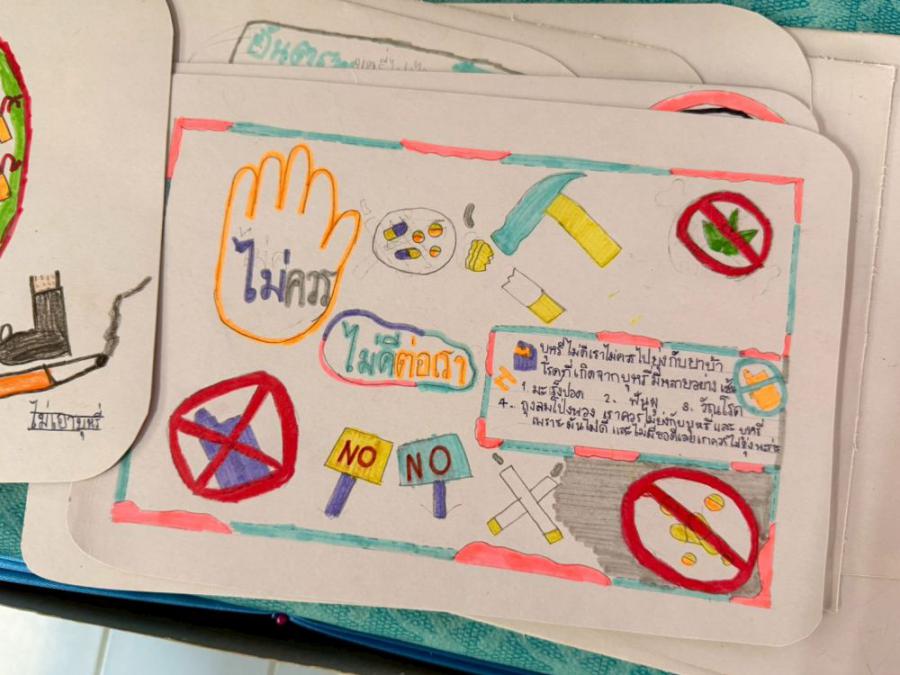 อันตราย
ไม่ควร
ไม่ดีต่อเรา
บุหรี่ไม่ดีเราไม่ควรไปยุ่งกับยาบ้า
โรคที่เกิดจากบุหรี่มีหลายอย่าง เช่น
1. มะเร็งปอด 2. ฟันผุ 3. วัณโรค
4. ถุงลมโป่งพอง เราควรไม่ยุ่งกับบุหรี่และ บุหรี่
เพราะมันไม่ดี และไม่มีของดีเลย
NO
NO
ไม่เอาบุหรี่